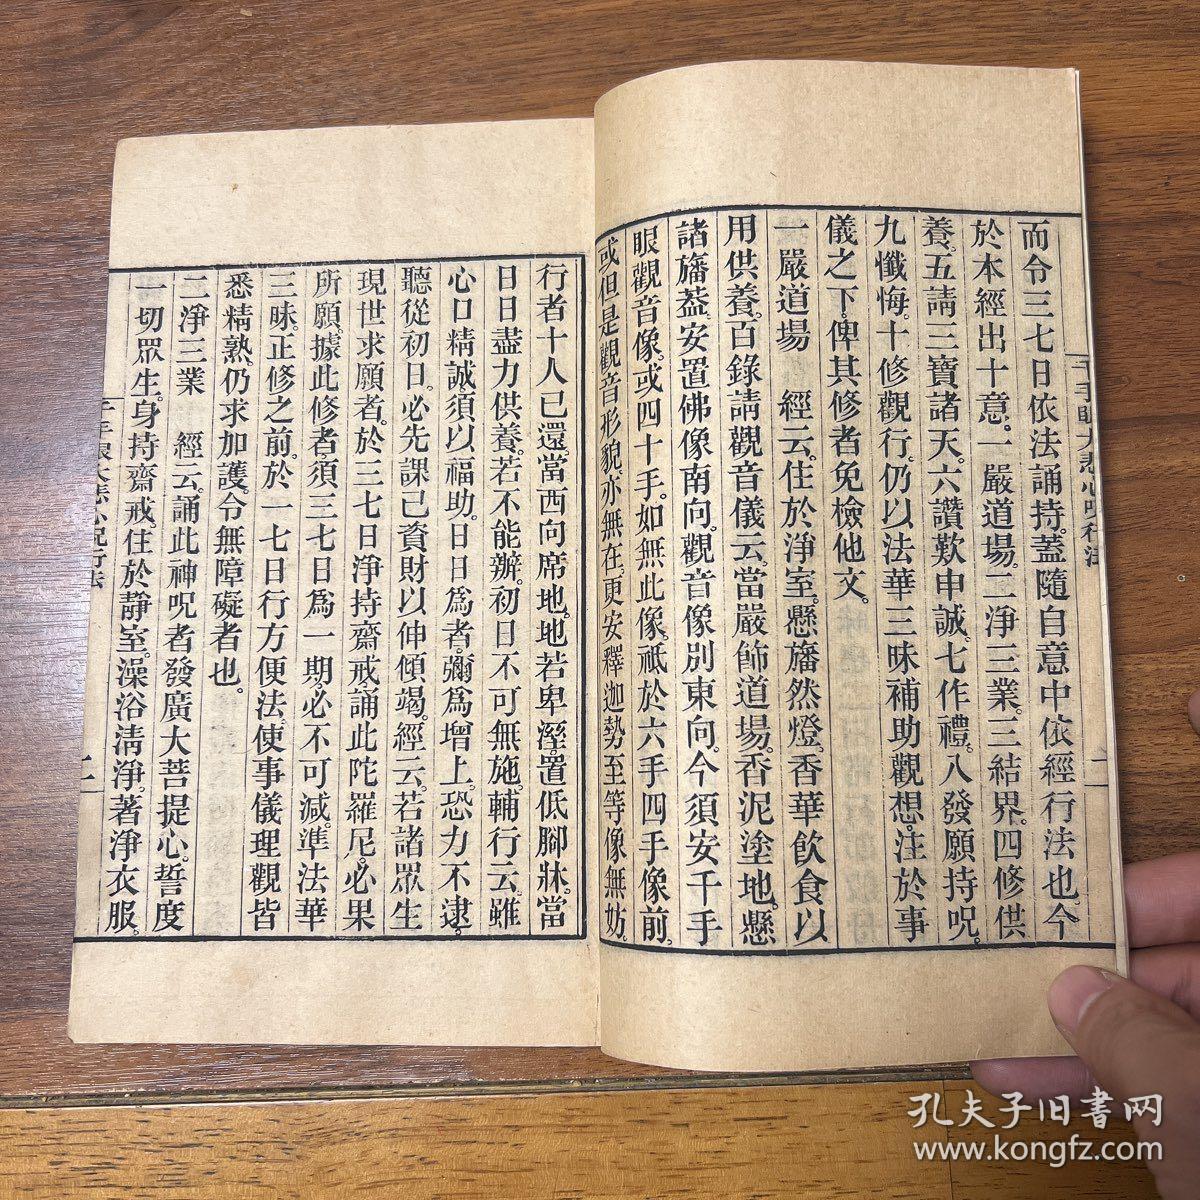 而令三七日依法誦持。蓋隨自意中依經行法也。今
於本經出十意。一嚴道場。二淨三業。三結界。四修供
養。五請三寶諸天。六讚歎申誠。七作禮。八發願持呪。
九懺悔。十修觀行。仍以法華三昧補助觀想。注於事
儀之下。俾其修者免檢他文。
一嚴道場　經云。住於淨室。懸旛然燈。香華飲食以
用供養。百錄請觀音儀云。當嚴飾道場。香泥塗地。懸
諸旛葢。安置佛像南向。觀音像別東向。今須安千手
眼觀音像。或四十手。如無此像。祇於六手四手像前。
或但是觀音形貌。亦無在。更安釋迦勢至等像無妨。
千手眼大悲心呪行法　一
行者十人已還。當西向席地。地若卑溼。置低腳牀。當
日日盡力供養。若不能辦。初日不可無施。輔行云。雖
心口精誠。須以福助。日日爲者。彌爲增上。恐力不逮。
聽從初日。必先課己資財以伸傾竭。經云。若諸眾生
現世求願者。於三七日淨持齋戒誦此陀羅尼。必果
所願。據此修者。須三七日爲一期。必不可減。準法華
三昧。正修之前。於一七日行方便法。使事儀理觀皆
悉精熟。仍求加護。令無障礙者也。
二淨三業　經云。誦此神呪者。發廣大菩提心。誓度
一切眾生。身持齋戒。住於靜室。澡浴清淨。著淨衣服。
千手眼大悲心呪行法　二
孔夫子旧书网
www.kongfz.com